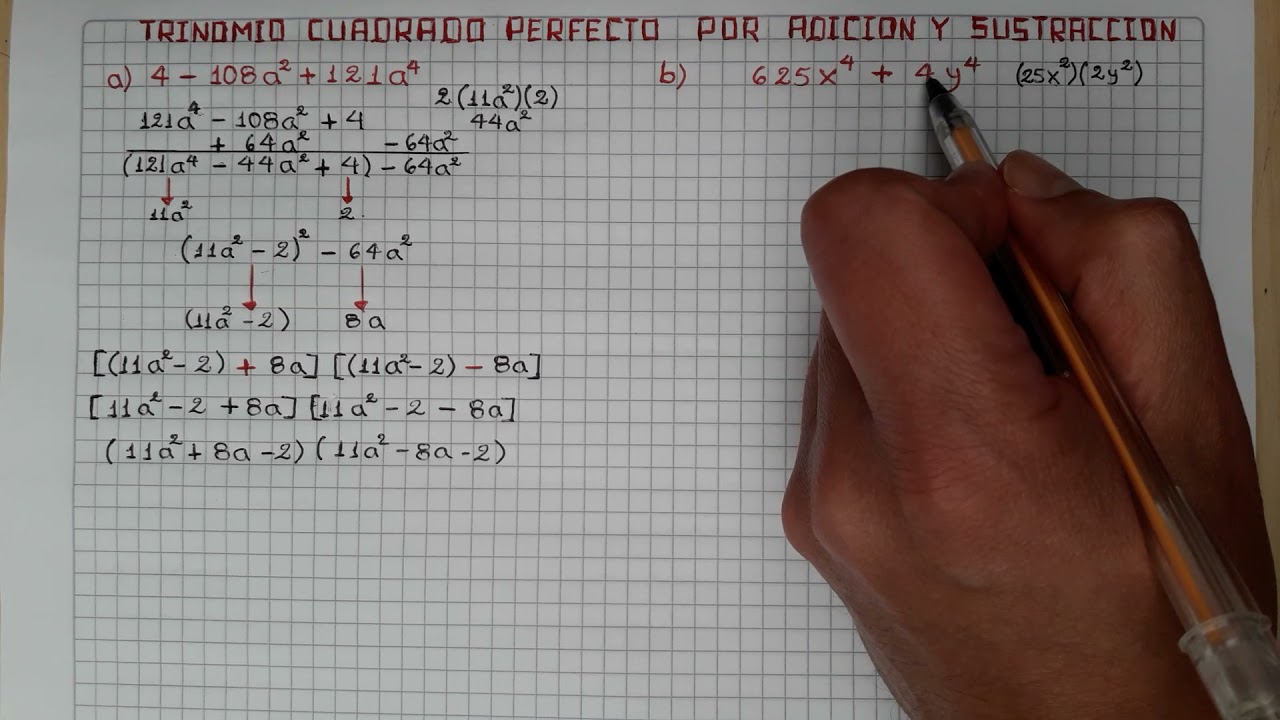 TRINOMIO CUADRADO PERFECTO POR ADICION Y SUSTRACCION
a) 4 - 108a² + 121a⁴
2(11a²)(2)
121a⁴ - 108a² + 4
44a²
+ 64a² - 64a²
(121a⁴ - 44a² + 4) - 64a²
11a² 2.
(11a² - 2)² - 64a²
(11a² - 2) 8a
[(11a² - 2) + 8a] [(11a² - 2) - 8a]
[11a² - 2 + 8a] [11a² - 2 - 8a]
(11a² + 8a - 2) (11a² - 8a - 2)
b) 625x⁴ + 4y⁴ (25x²)(2y²)